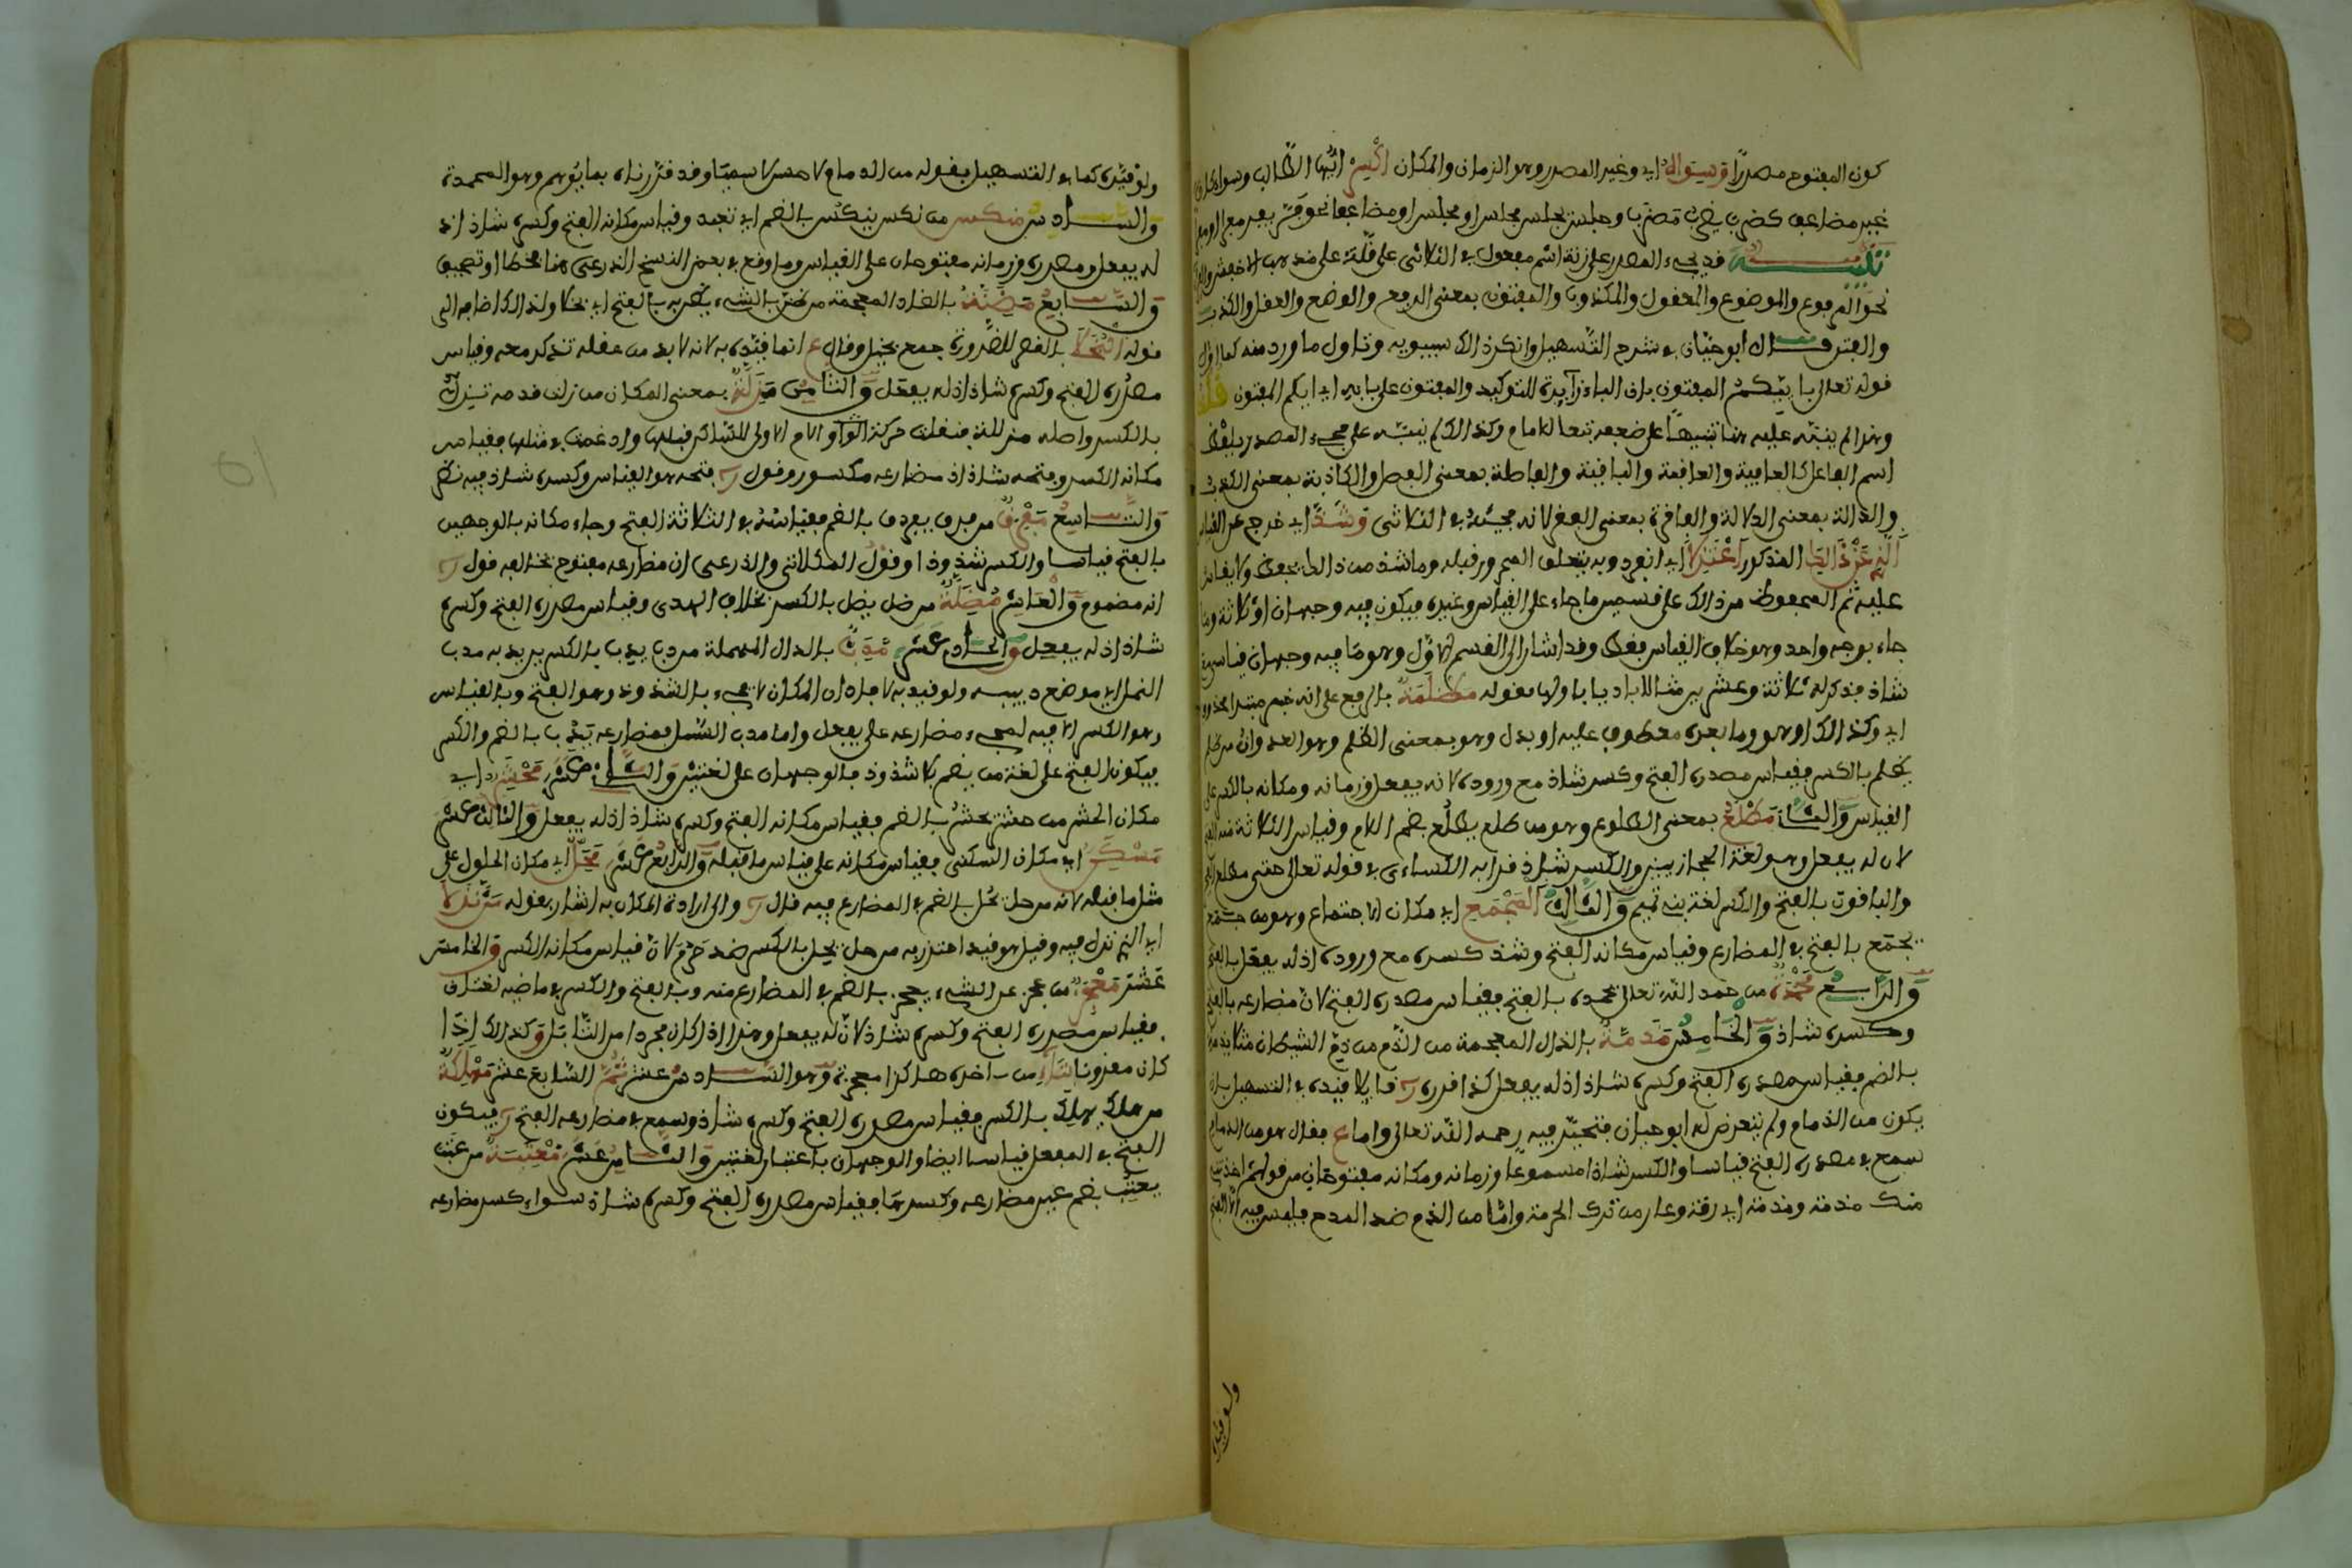 كون المفتوح مصدرا وسواه اي وغير المصدر وهو الزمان والمكان اكسر ايها الطالب وسواء كان
غير مضاعف كضرب يضرب مضربا وجلس يجلس مجلسا ومجلسا او مضاعفا نحو فر يفر
تنبيه قد يجيء المصدر على زنة اسم مفعول في الثلاثي على قلة على مذهب الاخفش
نحو المرفوع والموضوع والمعقول والمكذوب والمفتون بمعنى الرفع والوضع والعقل والكذب
والفتن قال ابو حيان في شرح التسهيل وانكر ذلك سيبويه وتاول ما ورد منه كما اول
قوله تعالى باييكم المفتون بان الباء زايدة للتوكيد والمفتون على بابه اي ايكم المفتون قلت
وهذا لم ينبه عليه هنا تنبيها على ضعفه تبعا للامام وكذلك لم ينبه على مجيء المصدر بلفظ
اسم الفاعل كالعافية والعاقبة والباقية والفاصلة بمعنى الفصل والكاذبة بمعنى الكذب
والدالة بمعنى الدلالة والعاقرة بمعنى العقر لانه مجيئه في الثلاثي وشذ اي خرج عن القياس
الذي عن ذا المذكور اعتزلا اي انفرد وبه يتعلق المجرور قبله وما شذ من ذلك يحفظ ولا يقاس
عليه ثم المحفوظ من ذلك على قسمين ما جاء على القياس وغيره فيكون فيه وجهان او ثلاثة وما
جاء بوجه واحد وهو خلاف القياس فقط وقد اشار الى القسم الاول وهو ما فيه وجهان قياسي و
شاذ فذكر له ثلاثة وعشرين مثالا باديا باولها بقوله مظلمة بالرفع على انه خبر مبتدا محذوف
اي وكذلك او هو وما بعده معطوف عليه او بدل وهو بمعنى الظلم وهو العدوان من ظلم
يظلم بالكسر فقياس مصدره الفتح وكسر شاذ مع وروده لانه يفعل وزمانه ومكانه بالكسر على
القياس والثاني مطلع بمعنى الطلوع وهو من طلع يطلع بضم اللام وقياس الثلاثة منه الفتح
لان له يفعل وهو لغة الحجازيين والكسر شاذ قرا به الكساءي في قوله تعالى حتى مطلع الفجر
والباقون بالفتح والكسر لغة بني تميم والثالث المجمع اي مكان الاجتماع وهو من جمع
يجمع بالفتح في المضارع وقياس مكانه الفتح وشذ كسره مع وروده اذ له يفعل بالفتح
والرابع محمدة من حمد الله تعالى يحمده بالفتح فقياس مصدره الفتح لان مضارعه بالفتح
وكسره شاذ والخامس مذمة بالذال المعجمة من الذم من ذم الشيطان مثلا يذمه
بالضم فقياس مصدره الفتح وكسره شاذ اذ له يفعل كذا قرره قايلا قيده في التسهيل بان
يكون من الذمام ولم يتعرض له ابو حيان فتحير فيه رحمه الله تعالى واما ع فقال هو من الذمام
سمع في مصدره الفتح قياسا والكسر شاذا مسموعا وزمانه ومكانه مفتوحان من قولهم اخذتني
منك مذمة ومذمة اي رقة وعار من ترك الحرمة واما من الذم ضد المدح فليس فيه الا الفتح
ولو قيده
ولو قيده كما في التسهيل بقوله من الذمام لا حسن لا سيما وقد قررناه بما يوهم وهو المحمدة
والسادس منكس من نكس ينكس بالضم اي تعبد وقياس مكانه الفتح وكسره شاذ اذ
له يفعل ومصدره وزمانه مفتوحان على القياس وما وقع في بعض النسخ الذرعى هنا خطا او تصحيف
والسابع مضنة بالضاد المعجمة من ضن بالشيء يضن به بالفتح اي بخلا ولذلك اضافه الى
قوله البخلا بالقصر للضرورة جمع بخيل وقال ع انما قيده به لانه لا بد من عقله تذكر معه وقياس
مصدره الفتح وكسره شاذ اذ له يفعل والثامن مزلة بمعنى المكان من زلت قدمه تزل
بالكسر واصله مزللة فنقلت حركة الواو اللام الاولى للساكن قبلها وادغمت في مثلها فقياس
مكانه الكسر وفتحه شاذ اذ مضارعه مكسور وقول فتحه هو القياس وكسره شاذ فيه نظر
والتاسع مفرق من فرق يفرق بالضم فقياسه في الثلاثة الفتح وجاء مكانه بالوجهين
بالفتح قياسا والكسر شذوذا وقول المكلاتي والذرعى ان مضارعه مفتوح يخالفه قول
انه مضموم والعاشر مضلة من ضل يضل بالكسر بخلاف الهدى وقياس مصدره الفتح وكسره
شاذ اذ له يفعل والحادي عشر مدب بالدال المهملة من دب يدب بالكسر يريد به مدب
النمل اي موضع دبيبه ولو قيد به لافاد ان المكان يجيء بالشذوذ وهو الفتح وبالقياس
وهو الكسر لا فيه لمجيء مضارعه على يفعل واما مدب السيل فمضارعه يدب بالضم والكسر
فيكون الفتح على لغة من يضم بلا شذوذ فالوجهان على لغتين والثاني عشر محشر اي
مكان الحشر من حشر يحشر بالضم فقياس مكانه الفتح وكسره شاذ اذ له يفعل والثالث عشر
مسكن اي مكان السكنى فقياس مكانه على قياس ما قبله والرابع عشر محل اي مكان الحلول على
مثل ما قبله لانه من حل يحل بالضم في المضارع فيه قال والى ارادة المكان به اشار بقوله من نزلا
اي الذي نزل فيه وقيل هو قيد احترز به من حل يحل بالكسر ضد حرم لان قياس مكانه الكسر والخامس
عشر معجز من عجز عن الشيء يعجز بالضم في المضارع منه وبالفتح والكسر في ماضيه لغتان
فقياس مصدره الفتح وكسره شاذ لان له يفعل وهذا اذا كان مجردا من التاء بل وكذلك اذا
كان مقرونا بتاء من اخره هكذا معجزة وهو السادس عشر ثم السابع عشر مهلكة
من هلك يهلك بالكسر فقياس مصدره الفتح وكسره شاذ وسمع في مضارعه الفتح فيكون
الفتح في المفعل قياسا ايضا والوجهان باعتبار لغتين والثامن عشر معتبة من عتب
يعتب بضم عين مضارعه وكسرها فقياس مصدره الفتح وكسره شاذ سواء كسر مضارعه